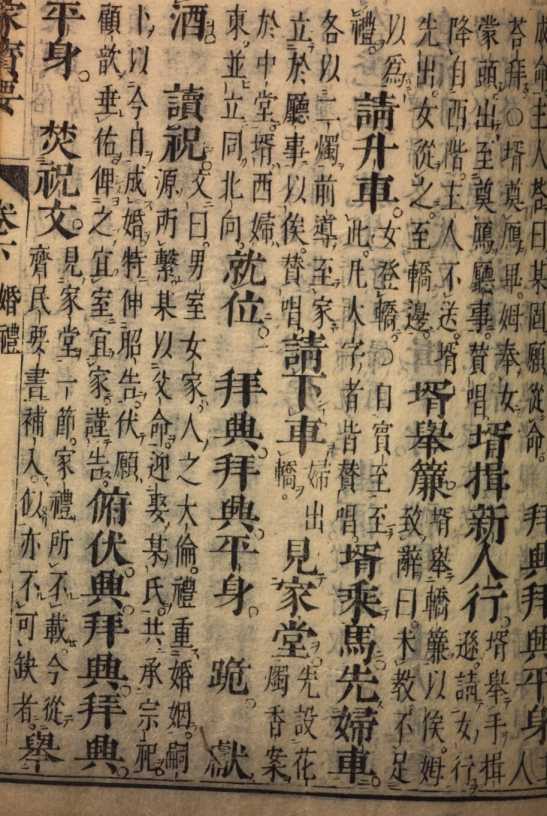 成命主人荅曰某固願從命。拜興拜興平身 主人
荅拜。○壻奠鴈畢。姆奉女蒙頭出至奠鴈廳事。贊唱壻揖新人行。壻舉手揖遜。請女行
降自西階。主人不送。壻先出。女從之。至轎邊。壻舉簾壻舉轎簾以俟。姆致辭曰。未教。不足
以爲禮。請升車。女登轎。○自賓至至此。凡大字者皆贊唱。壻乘馬先婦車。
各以二燭前導至家。立於廳事以俟。贊唱請下車婦出轎。見家堂先設花燭香案
於中堂。壻西婦東。並立同北向。就位 拜興拜興平身 跪 獻
酒 讀祝文曰。男室女家。人之大倫。禮重婚姻。嗣源所繫。某以父命迎娶某氏。共承宗祀。
卜以今日成婚。特伸昭告。伏願顧歆垂佑。俾之宜室宜家。謹告。俯伏興。拜興。拜興。
平身。焚祝文。見家堂一節。家禮所不載。今從齊民要書補入。似亦不可缺者。舉
卷六 婚禮